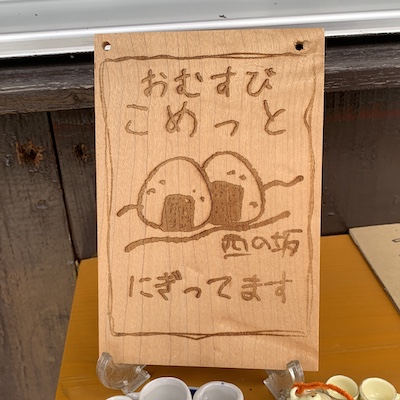 おむすび
こめっと
西の坂
にぎってます